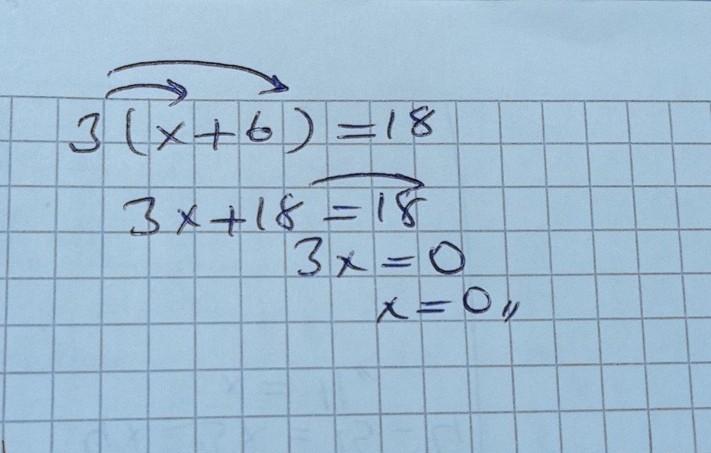 3(x+6)=18
3x+18=18
3x=0
x=0,,